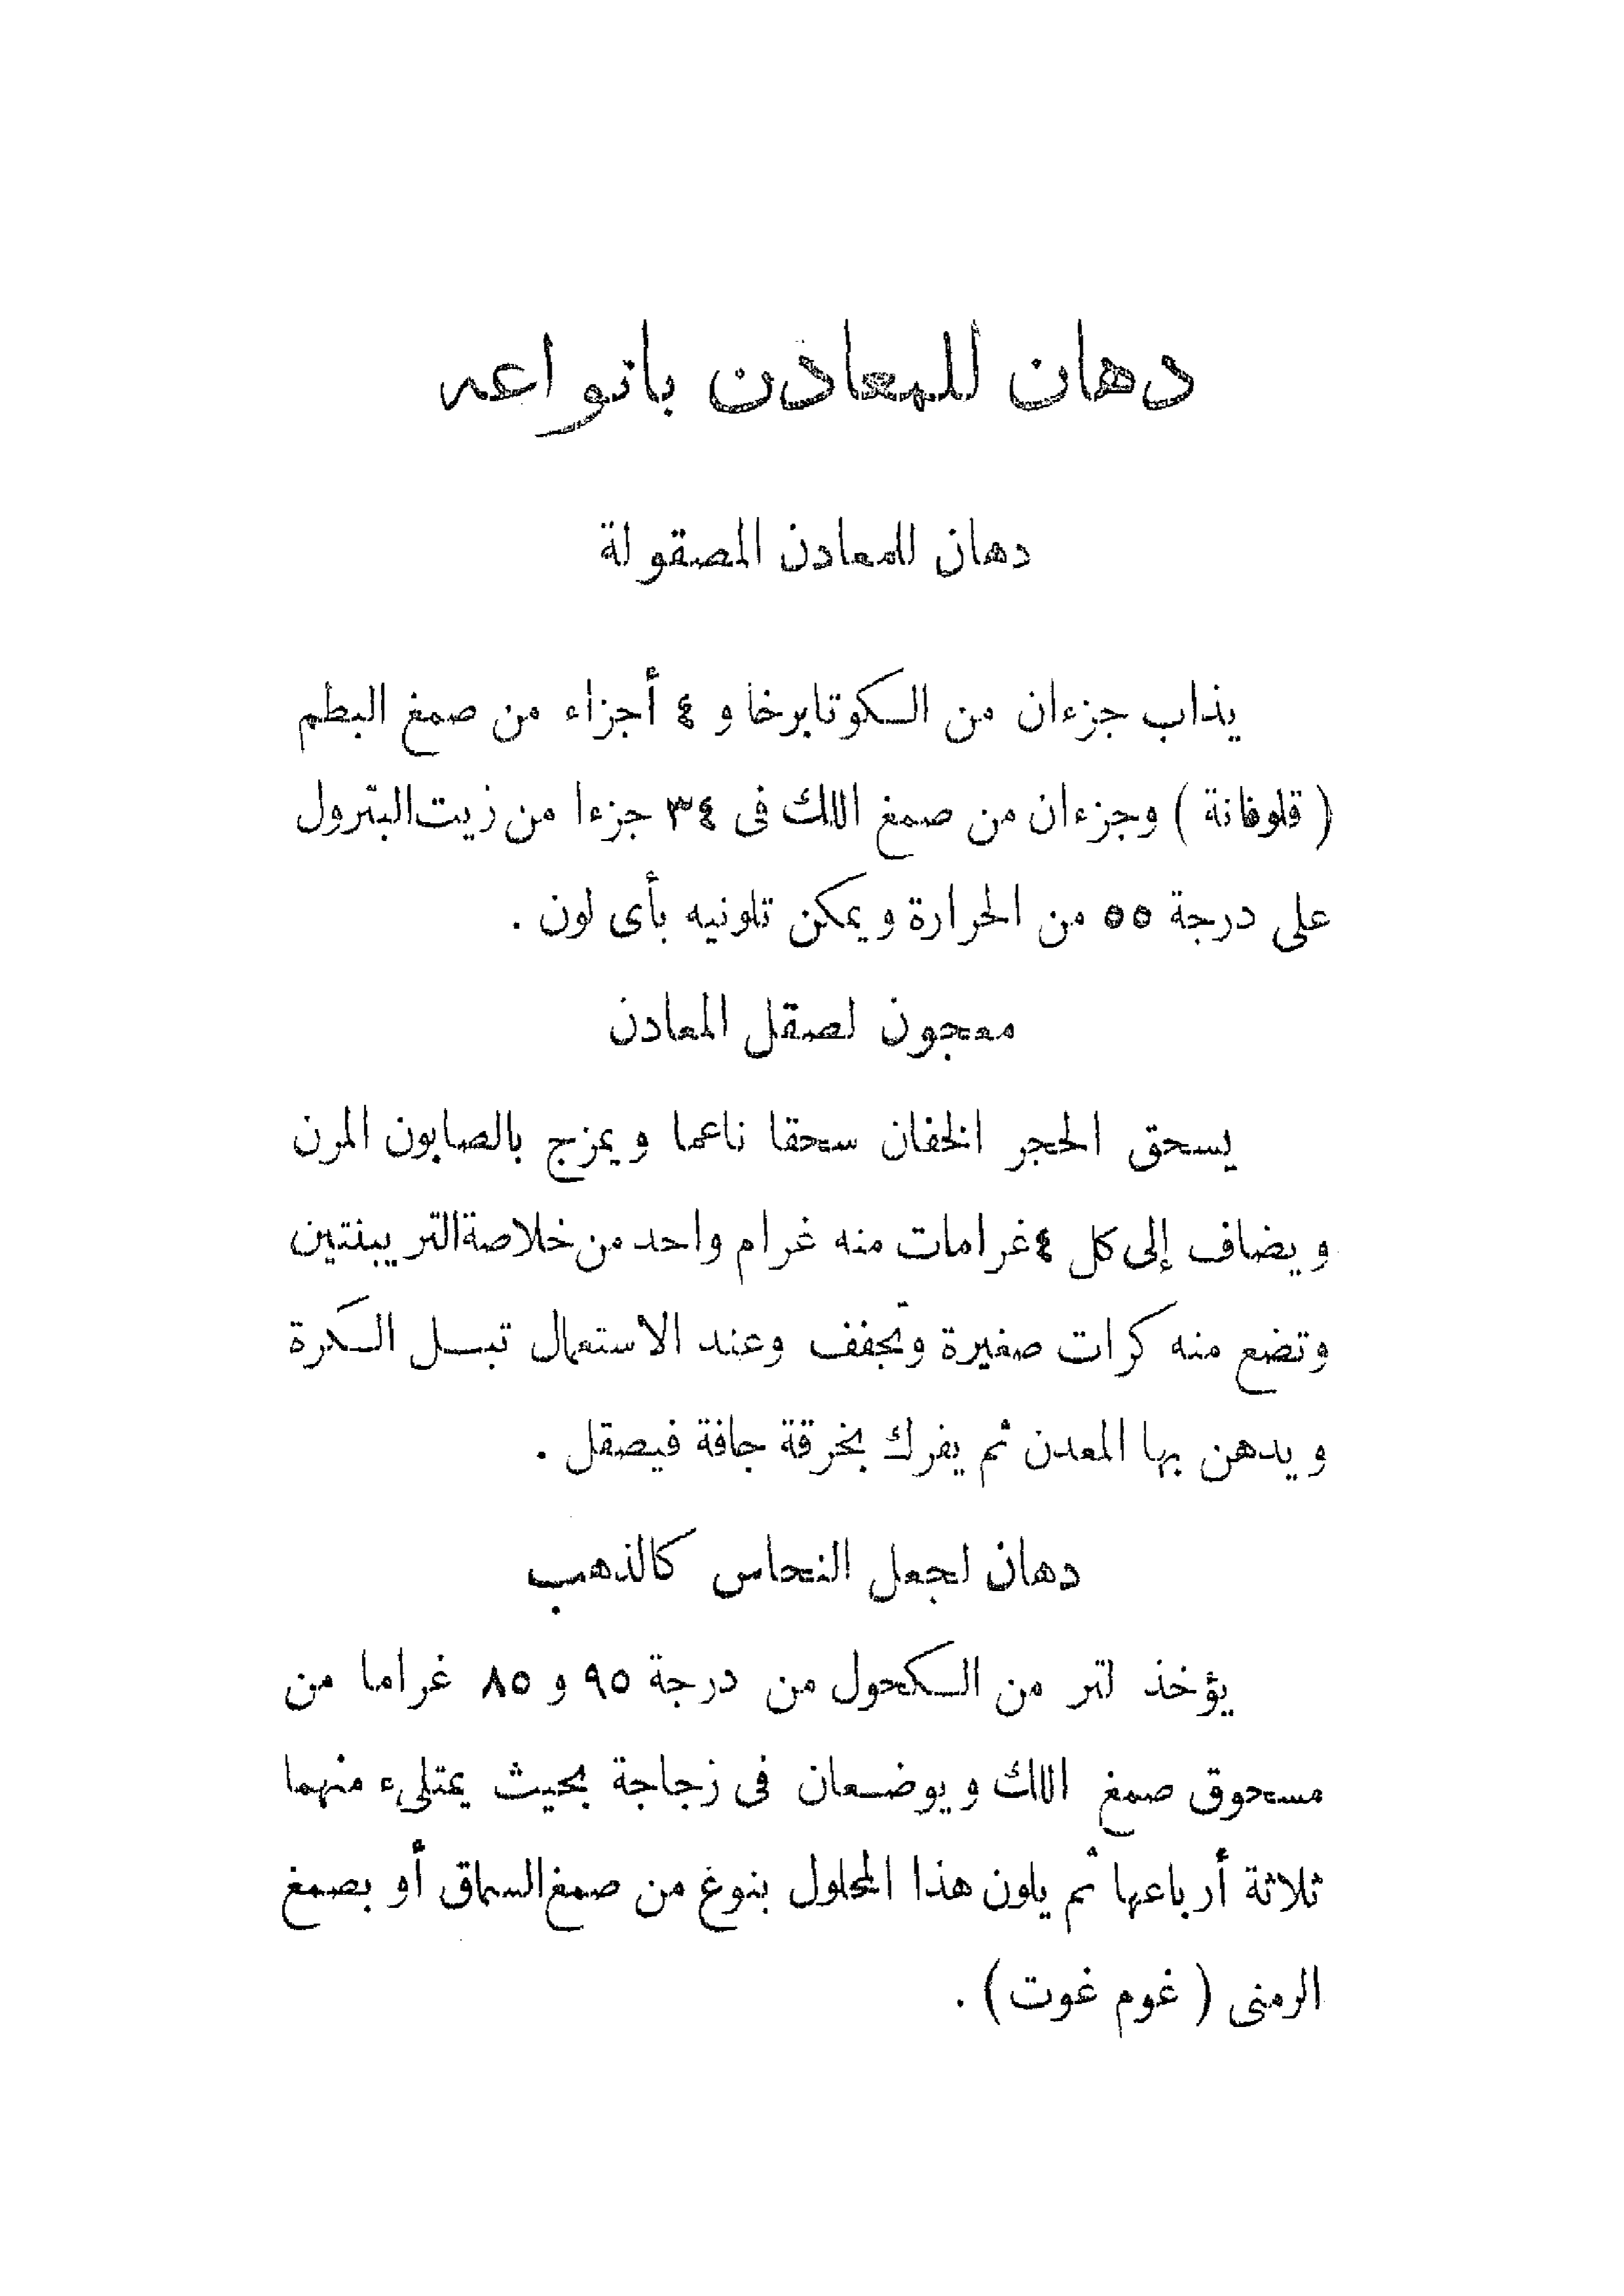 دهان للمعادن بانواعه
دهان للمعادن المصقولة
يذاب جزءان من الكوتابرخا و ٤ أجزاء من صمغ البطم
( قلوفانة ) وجزءان من صمغ اللك فى ٣٤ جزءا من زيت البترول
على درجة ٥٥ من الحرارة ويمكن تلونيه بأى لون .
معجون لصقل المعادن
يسحق الحجر الخفان سحقا ناعما ويمزج بالصابون المرن
ويضاف إلى كل ٤ غرامات منه غرام واحد من خلاصة التربينتين
وتضع منه كرات صغيرة وتجفف وعند الاستعمال تبل الكرة
ويدهن بها المعدن ثم يفرك بخرقة جافة فيصقل .
دهان لجعل النحاس كالذهب
يؤخذ لتر من الكحول من درجة ٩٥ و ٨٥ غراما من
مسحوق صمغ اللك ويوضعان فى زجاجة بحيث يمتلىء منهما
ثلاثة أرباعها ثم يلون هذا المحلول بنوغ من صمغ السماق أو بصمغ
الرمنى ( غوم غوت ) .